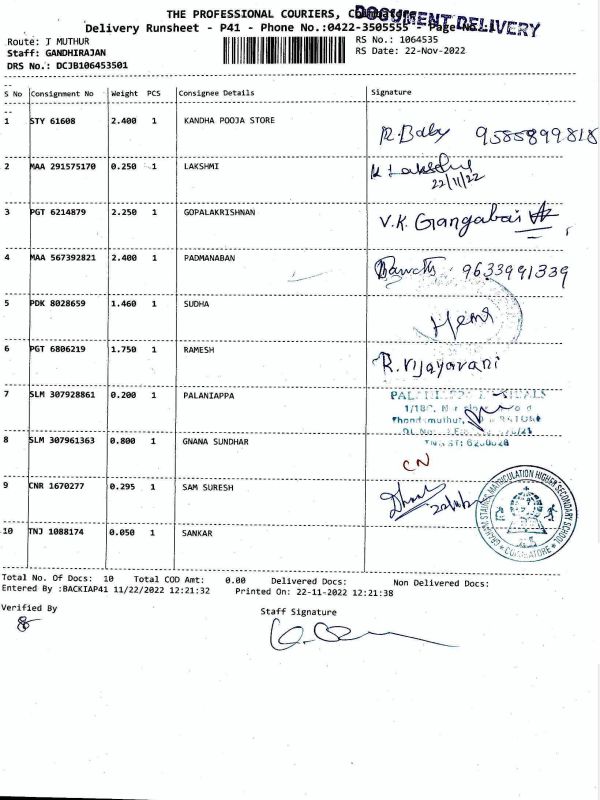 THE PROFESSIONAL COURIERS,
DOCUMENT DELIVERY
Delivery Runsheet - P41 - Phone No.:0422-3505555 - Page No.:
Route: T MUTHUR
RS No.: 1064535
Staff: GANDHIRAJAN
RS Date: 22-Nov-2022
DRS No.: DCJB106453501
S No Consignment No Weight PCS Consignee Details Signature
1 STY 61608 2.400 1 KANDHA POOJA STORE R. Baby 9585899818
2 MAA 291575170 0.250 1 LAKSHMI
22/11/22
3 PGT 6214879 2.250 1 GOPALAKRISHNAN V.K. Gangabai
4 MAA 567392821 2.400 1 PADMANABAN 9633991339
5 PDK 8028659 1.460 1 SUDHA
6 PGT 6806219 1.750 1 RAMESH R. Vijayarani
7 SLM 307928861 0.200 1 PALANIAPPA
8 SLM 307961363 0.800 1 GNANA SUNDHAR CN
9 CNR 1670277 0.295 1 SAM SURESH
10 TNJ 1088174 0.050 1 SANKAR
GRAHAM STAINES MATRICULATION HIGHER SECONDARY SCHOOL
COIMBATORE
Total No. Of Docs: 10 Total COD Amt: 0.00 Delivered Docs: Non Delivered Docs:
Entered By :BACKIAP41 11/22/2022 12:21:32 Printed On: 22-11-2022 12:21:38
Verified By Staff Signature